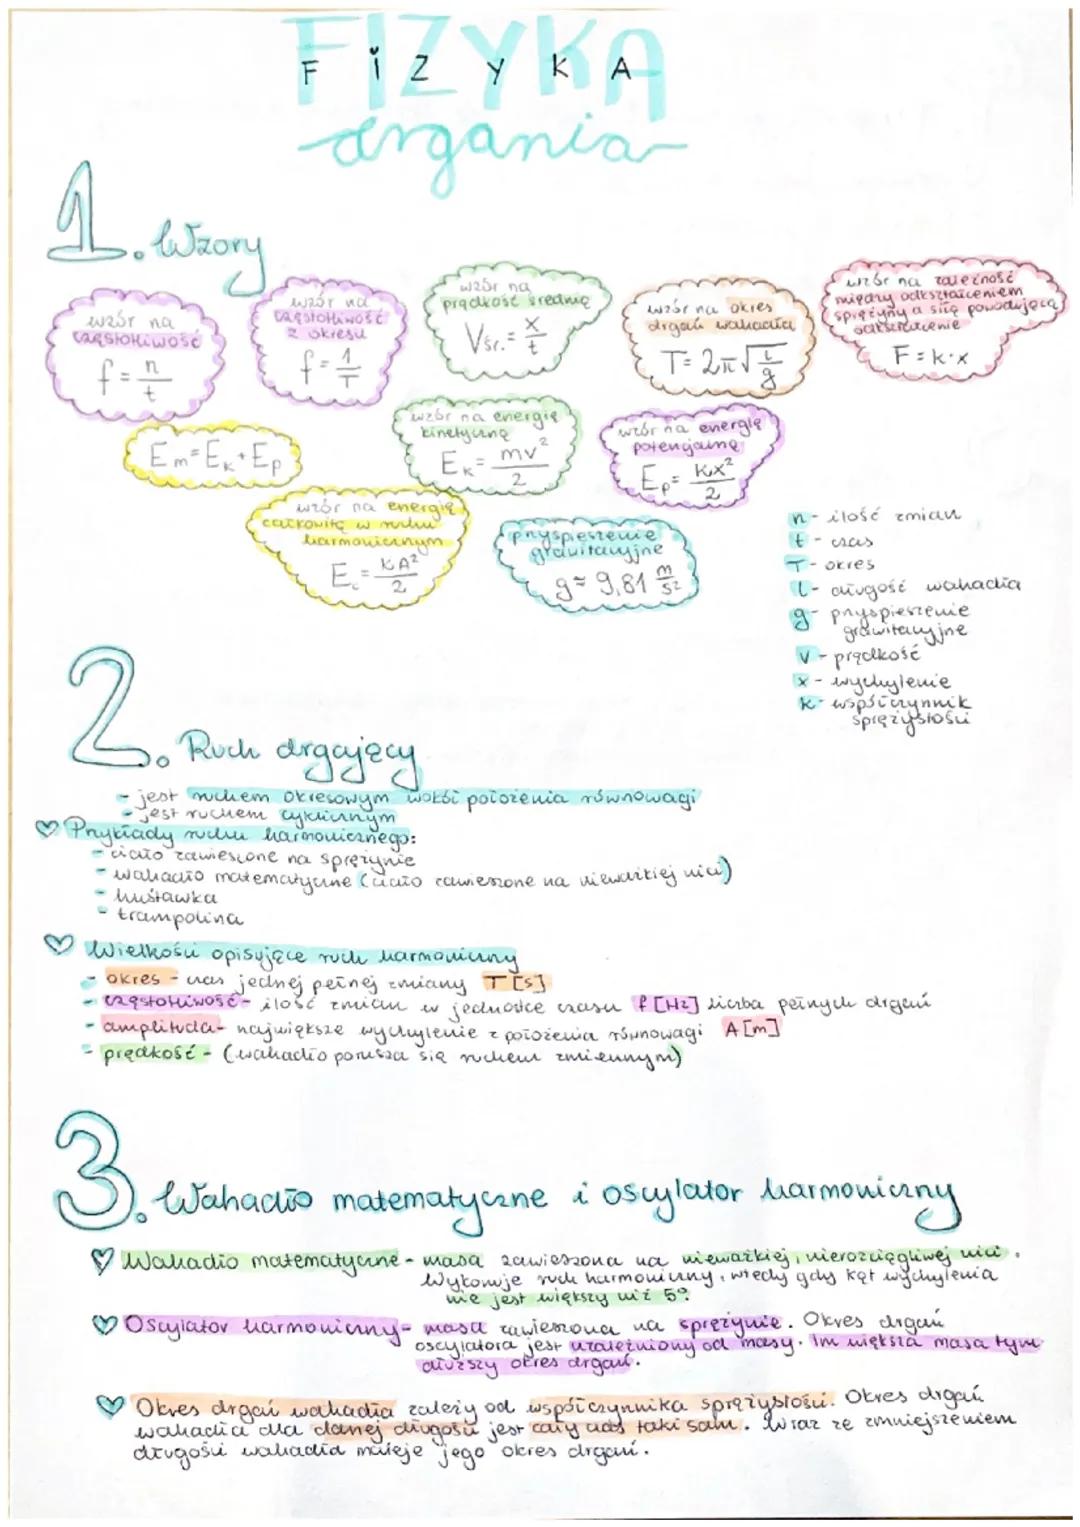 FIZYKA
F i Z Y K A
drgania
1. Wzory
wzór na
częstotliwość
f = n/t
wzór na
częstotliwość
z okresu
f = 1/T
wzór na
prędkość średnią
Vśr. = x/t
wzór na okres
drgań wahadła
T = 2π√l/g
wzór na zależność
między odkształceniem
sprężyny a siłą powodującą
odkształcenie
F = k·x
Em = Ek + Ep
wzór na energię
kinetyczną
Ek = mv²/2
wzór na energię
potencjalną
Ep = kx²/2
wzór na energię
całkowitą w ruchu
harmonicznym
Ec = kA²/2
przyspieszenie
grawitacyjne
g ≈ 9,81 m/s²
n - ilość zmian
t - czas
T - okres
l - długość wahadła
g - przyspieszenie
grawitacyjne
V - prędkość
x - wychylenie
k - współczynnik
sprężystości
2. Ruch drgający
- jest ruchem okresowym wokół położenia równowagi
- jest ruchem cyklicznym
♡ Przykłady ruchu harmonicznego:
- ciało zawieszone na sprężynie
- wahadło matematyczne (ciało zawieszone na nieważkiej nici)
- huśtawka
- trampolina
♡ Wielkości opisujące ruch harmoniczny
- okres - czas jednej pełnej zmiany T [s]
- częstotliwość - ilość zmian w jednostce czasu f [Hz] liczba pełnych drgań
- amplituda - największe wychylenie z położenia równowagi A [m]
- prędkość - (wahadło porusza się ruchem zmiennym)
3. Wahadło matematyczne i oscylator harmoniczny
♡ Wahadło matematyczne - masa zawieszona na nieważkiej, nierozciągliwej nici.
Wykonuje ruch harmoniczny, wtedy gdy kąt wychylenia
nie jest większy niż 5°.
♡ Oscylator harmoniczny - masa zawieszona na sprężynie. Okres drgań
oscylatora jest uzależniony od masy. Im większa masa tym
dłuższy okres drgań.
♡ Okres drgań wahadła zależy od współczynnika sprężystości. Okres drgań
wahadła dla danej długości jest cały czas taki sam. Wraz ze zmniejszeniem
długości wahadła maleje jego okres drgań.